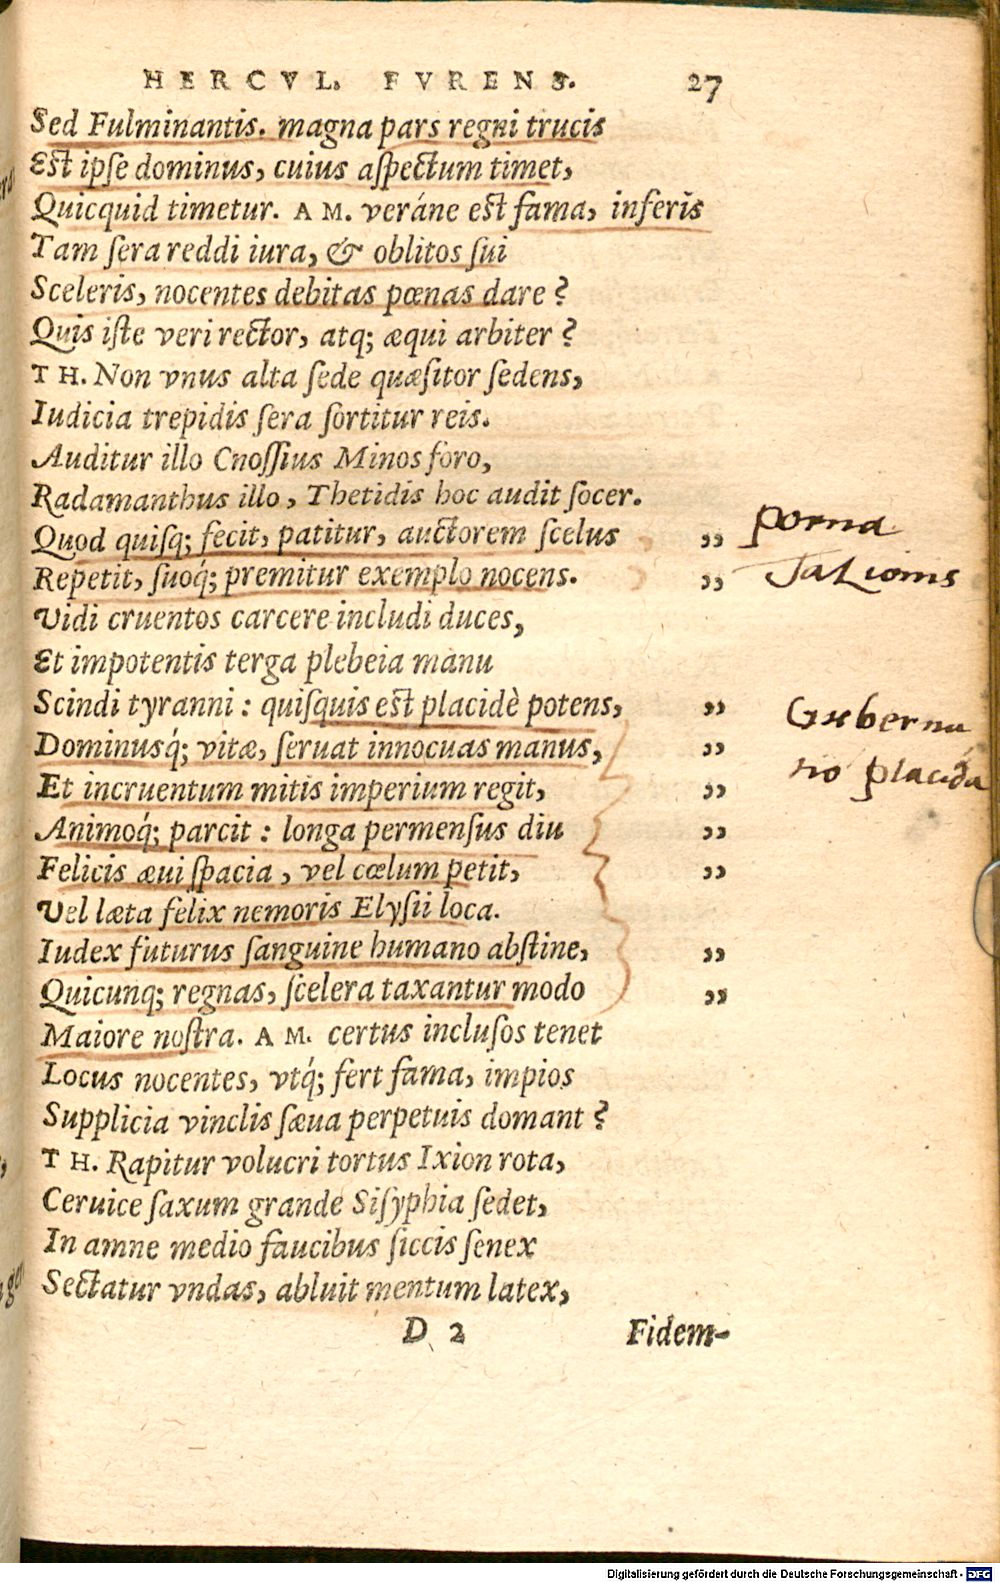 HERCVL. FVRENS. 27
Sed Fulminantis. magna pars regni trucis
Est ipſe dominus, cuius aſpectum timet,
Quicquid timetur. AM. veráne est fama, inferis
Tam ſera reddi iura, & oblitos ſui
Sceleris, nocentes debitas pœnas dare?
Quis iſte veri rector, atq; æqui arbiter?
TH. Non vnus alta ſede quæſitor ſedens,
Iudicia trepidis ſera ſortitur reis.
Auditur illo Cnoſſius Minos foro,
Radamanthus illo, Thetidis hoc audit ſocer.
Quod quiſq; fecit, patitur, auctorem ſcelus „ poena
Repetit, ſuoq́; premitur exemplo nocens. „ Talionis
Vidi cruentos carcere includi duces,
Et impotentis terga plebeia manu
Scindi tyranni: quiſquis est placidè potens, „ Guberna
Dominusq́; vitæ, ſeruat innocuas manus, „
Et incruentum mitis imperium regit, „ tio placida
Animoq́; parcit: longa permenſus diu „
Felicis æui ſpacia, vel cœlum petit, „
Vel læta felix nemoris Elyſii loca.
Iudex futurus ſanguine humano abſtine, „
Quicunq; regnas, ſcelera taxantur modo „
Maiore noſtra. AM. certus incluſos tenet
Locus nocentes, vtq́; fert fama, impios
Supplicia vinclis ſæua perpetuis domant?
TH. Rapitur volucri tortus Ixion rota,
Ceruice ſaxum grande Siſyphia ſedet,
In amne medio faucibus ſiccis ſenex
Sectatur vndas, abluit mentum latex,
D 2 Fidem-
Digitalisierung gefördert durch die Deutsche Forschungsgemeinschaft - DFG